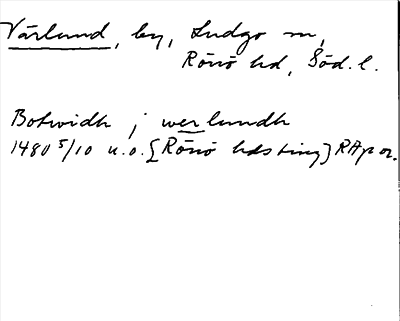 Värlund, by, Ludgo sn,
Rönö hd, Söd. l.
Botwidh j werlundh
1480 5/10 u.o. [Rönö hdsting] RAp or.